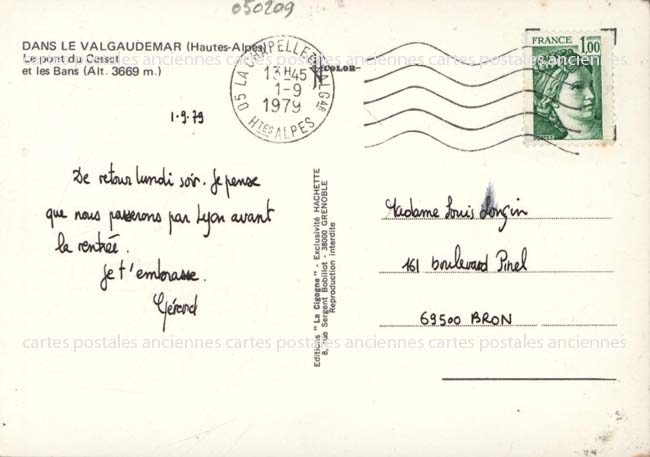 050209
DANS LE VALGAUDEMAR (Hautes-Alpes)
Le pont du Casset
et les Bans (Alt. 3669 m.)
05 LA CHAPELLE EN VALGAR
13H45
1-9
1979
HTES ALPES
COLOR
FRANCE
1,00
POSTES
1.9.79
De retour lundi soir. Je pense
que nous passerons par Lyon avant
la rentrée.
Je t'embrasse.
Gérard
Editions "La Cigogne" - Exclusivité HACHETTE
8, rue Sergent Bobillot - 38000 GRENOBLE
Reproduction interdite
Madame Louis Longin
161 boulevard Pinel
69500 BRON
cartes postales anciennes cartes postales anciennes cartes postales anciennes
cartes postales anciennes cartes postales anciennes cartes postales anciennes
cartes postales anciennes cartes postales anciennes cartes postales anciennes